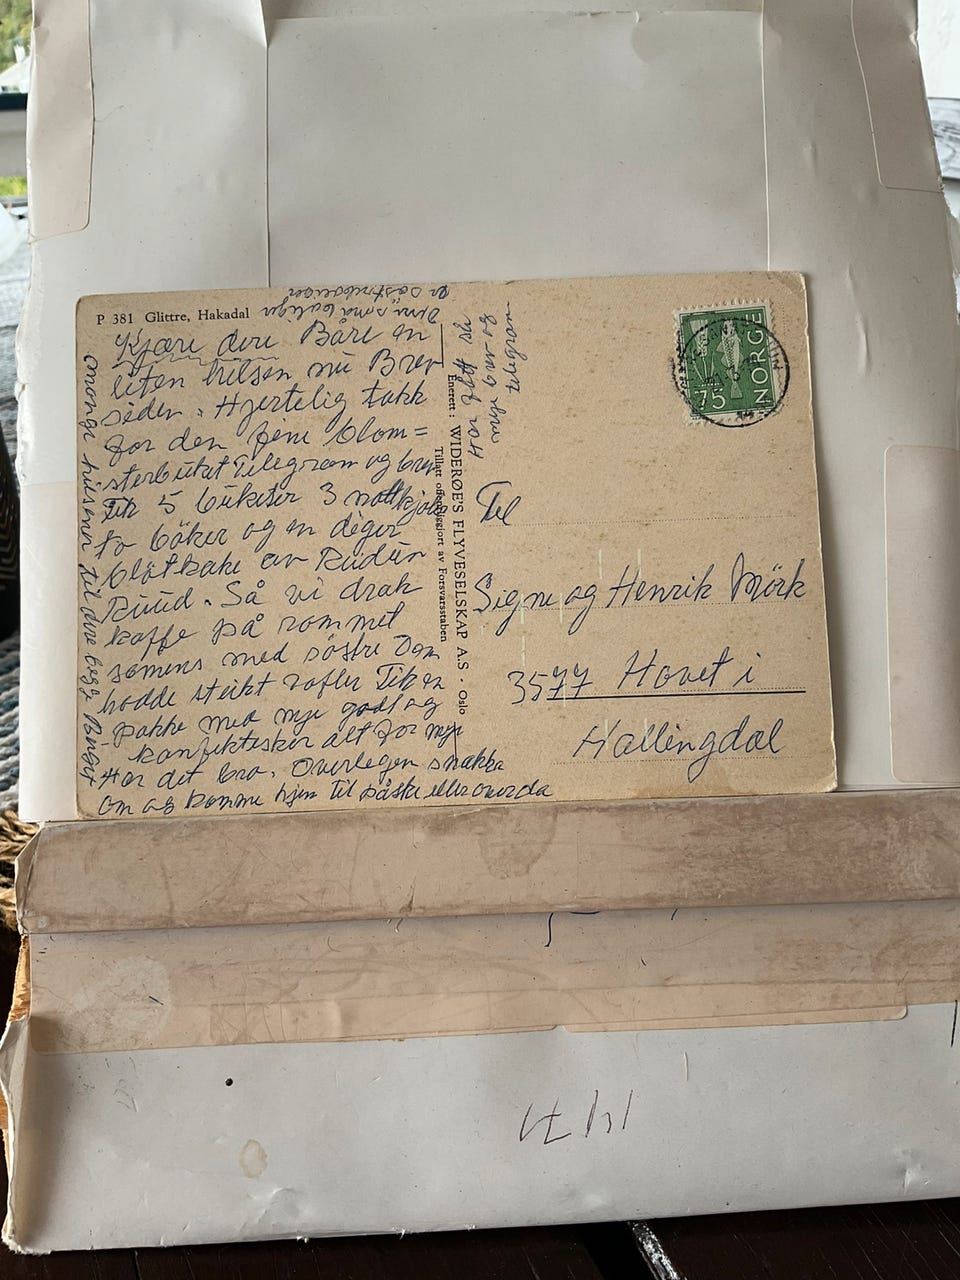 P 381 Glittre, Hakadal
Kjære dere Båre en
liten hilsen nu Brev
siden. Hjertelig takk
for den fine blom=
sterbuket Telegram og brev
fik 5 buketer 3 nattkjoler
to bøker og en diger
bløtkake av
Ruud. Så vi drak
kaffe på rommet
samens med søstre Dem
hadde steikt vafler Fik en
pakke med mye godt og
konfektesker alt for mye
Har det bra. Overlegen snakka
om og komme hjem til påske eller
mange hilsener til dere begge
små
Har fått så
mye brev og
telegram
Enerett: WIDERØE'S FLYVESELSKAP A.S - OSLO
Tillatt offentliggjort av Forsvarsstaben
NORGE
75
Til
Signe og Henrik Mörk
3577 Hovet i
Hallingdal